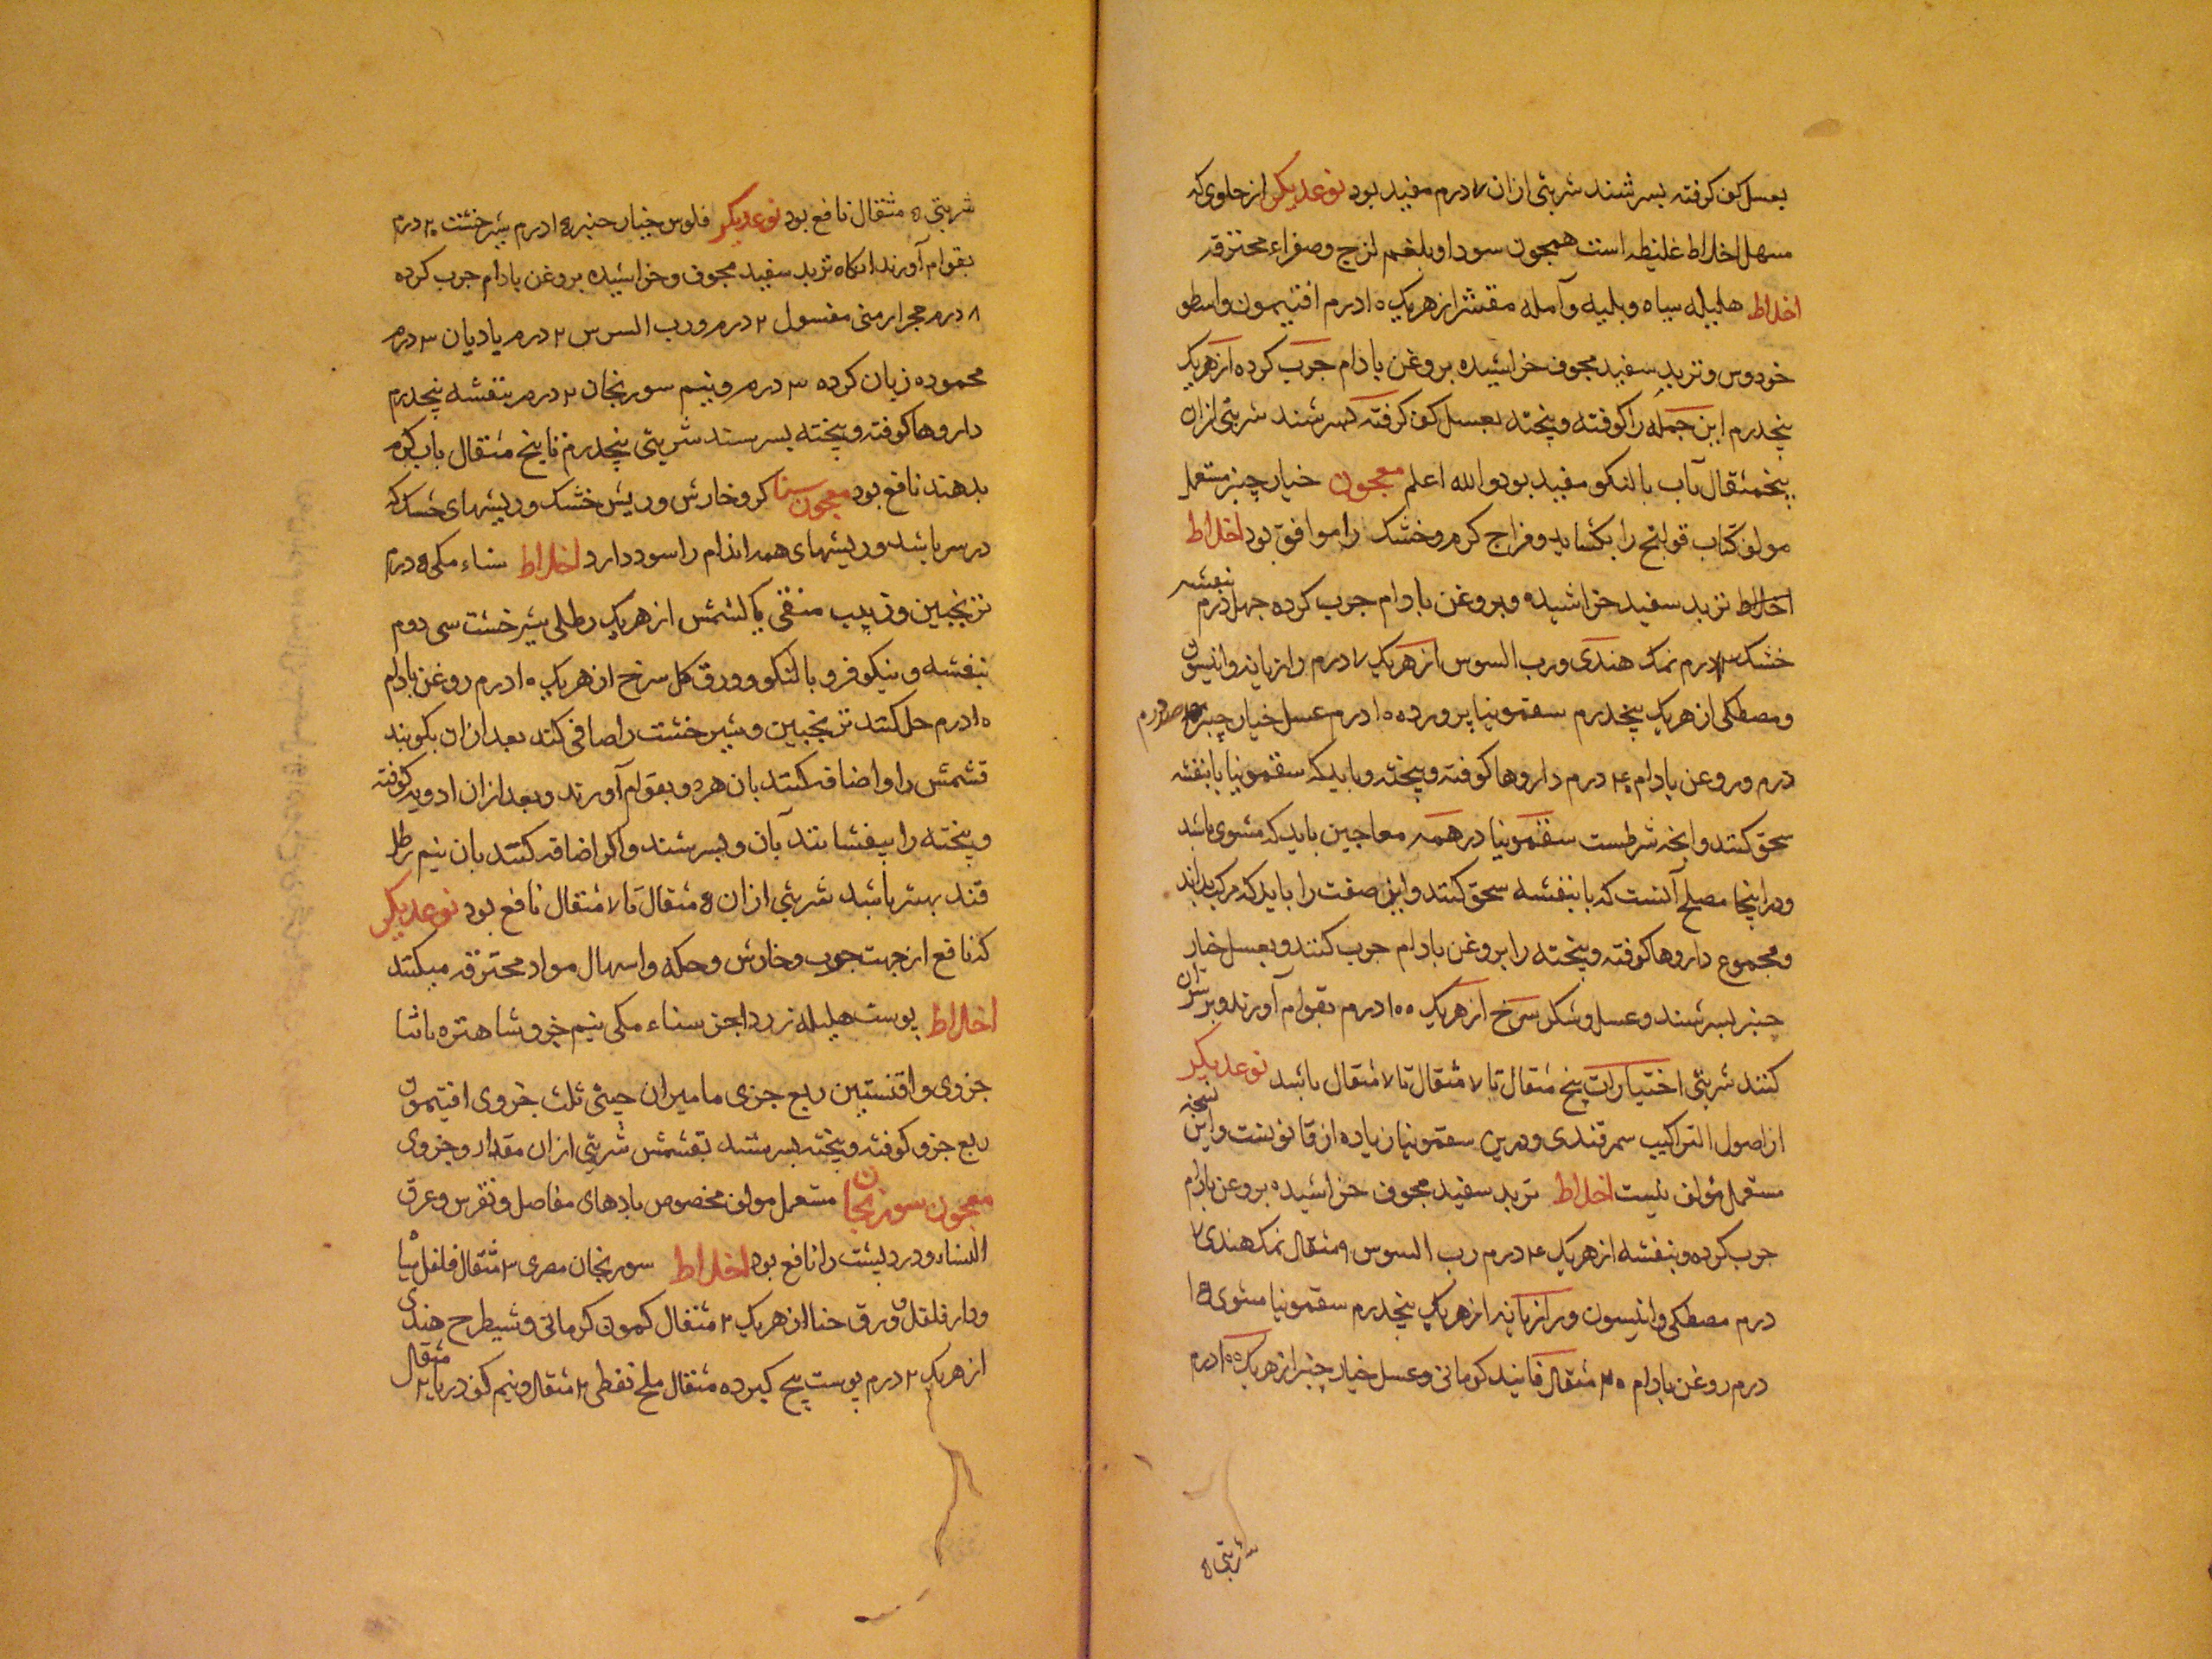 بعسل کف کرفته بسرشند شربتی ازان ۷ درم مفید بود نوعدیکر از حاوی که
مسهل اخلاط غلیظه است همچون سودا و بلغم لزج و صفراء محترقه
اخلاط هلیله سیاه و بلیله و آمله مقشر از هریک ۱۰ درم افتیمون و اسطو
خودوس و تربد سفید مجوف خراشیده بروغن بادام جرب کرده از هریک
پنجدرم این جمله را کوفته و پخته بعسل کف کرفته بسرشند شربتی ازان
پنجمثقال بآب بالنکو مفید بود والله اعلم معجون خیار چنبر مستعمل
مولف کتاب قولنج را بکشاید و مزاج کرم و خشک را موافق بود اخلاط
اخلاط تربد سفید خراشیده و بروغن بادام جرب کرده چهل درم بنفشه
خشک درم نمک هندی و رب السوس از هریک ۷ درم رازیانه و انیسون
و مصطکی از هریک پنجدرم سقمونیا پرورده ۱۰ درم عسل خیار چنبر درم
درم و روغن بادام ۴۰ درم داروها کوفته و پخته و باید که سقمونیا با بنفشه
سحق کنند و آنچه شرطست سقمونیا در همه معاجین باید که مشوی باشد
و در اینجا مصلح آنست که با بنفشه سحق کنند و این صفت را باید که مرکب بداند
و مجموع داروها کوفته و پخته را بروغن بادام جرب کنند و بعسل خیار
چنبر بسرشند و عسل و شکر سرخ از هریک ۱۰۰ درم بقوام آورند و بر سران
کنند شربتی اختیارات پنج مثقال تا ۷ مثقال تا ۷ مثقال باشد نوعدیکر
از اصول التراکیب سمرقندی و درین سقمونیا زیاده از قانونست و این نسخه
مستعمل مؤلف نیست اخلاط تربد سفید مجوف خراشیده بروغن بادام
جرب کرده و بنفشه از هریک ۴۰ درم رب السوس ۹ مثقال نمک هندی ۷
درم مصطکی و انیسون و رازیانه از هریک پنجدرم سقمونیا مشوی ۱۵
درم روغن بادام ۳۰ مثقال فانیذ کرمانی و عسل خیار چنبر از هریک ۱۰۰ درم
شربتی ۵
شربتی ۵ مثقال نافع بود نوعدیکر فلوس خیار چنبر ۱۵ درم شیرخشت ۲۰ درم
بقوام آورند انکاه تربد سفید مجوف و خراشیده بروغن بادام جرب کرده
۸ درم حجر ارمنی مغسول ۲ درم و رب السس ۲ درم بادیان ۳ درم
محموده زیان کرده ۳ درم و نیم سورنجان ۲ درم بنفشه پنجدرم
داروها کوفته و پخته بسرسند شربتی پنجدرم تا پنج مثقال باب کرم
بدهند نافع بود معجون سنا کر و خارش و ریش خشک و ریشهای خشک که
در سر باشد و ریشهای همه اندام را سود دارد اخلاط سناء مکی ۵ درم
ترنجبین و زبیب منقی یا کشمش از هریک رطلی شیرخشت سی درم
بنفشه و نیکوفر و بالنکو و ورق کل سرخ از هریک ۱۰ درم روغن بادام
۱۰ درم حل کنند ترنجبین و شیرخشت را صافی کنند بعد ازان بکوبند
قشمش را و اضافه کنند بان هردو بقوام آورند و بعد ازان ادویه کوفته
و پخته را بیفشانند بآن و بسرشند و اکر اضافه کنند بان نیم رطل
قند بهتر باشد شربتی ازان ۵ مثقال تا ۷ مثقال نافع بود نوعدیکر
که نافع از جهت جرب و خارش و حکه و اسهال مواد محترقه میکند
اخلاط پوست هلیله زرد اجز سناء مکی نیم جزو شاهتره باشا
جزوی و افسنتین ربع جزوی مامیران چینی ثلث جزوی افتیمون
ربع جزو کوفته و پخته بسرشند بقشمش شربتی ازان مقدار و جزوی
معجون سورنجان مستعمل مولف مخصوص بادهای مفاصل و نقرس و عرق
النساء و درد پشت را نافع بود اخلاط سورنجان مصری ۳ مثقال فلفل سیا
و دارفلفل و ورق حنا از هریک ۲ مثقال کمون کرمانی و شیطرح هندی
از هریک ۲ درم پوست بیخ کبر ده مثقال ملح نفطی ۲ مثقال و نیم کف دریا ۲ مثقال